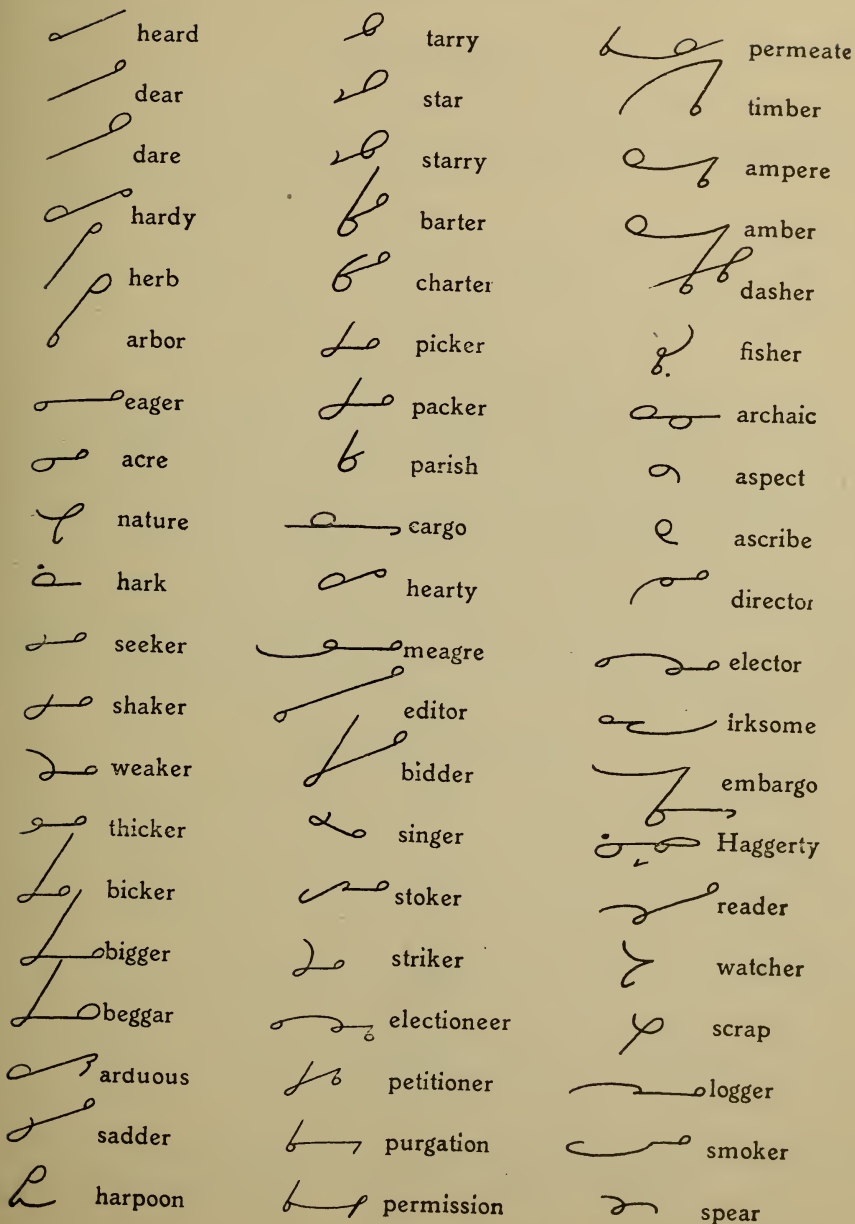 heard
dear
dare
hardy
herb
arbor
eager
acre
nature
hark
seeker
shaker
weaker
thicker
bicker
bigger
beggar
arduous
sadder
harpoon
tarry
star
starry
barter
charter
picker
packer
parish
cargo
hearty
meagre
editor
bidder
singer
stoker
striker
electioneer
petitioner
purgation
permission
permeate
timber
ampere
amber
dasher
fisher
archaic
aspect
ascribe
director
elector
irksome
embargo
Haggerty
reader
watcher
scrap
logger
smoker
spear